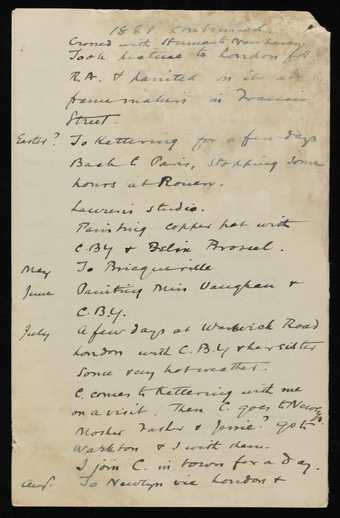 1881 continued
Crossed with Stewart Newhaven
Took picture to London for
R.A. & painted on it at
frame makers in
Street.
Easter? To Kettering for a few days
Back C Paris, stopping some
hours at Rouen.
studio.
Painting copper pot with
C.B.Y & Felix Brossel.
May To Bricqueville
June Painting Miss Vaughan &
C.B.Y.
July A few days at Warwick Road
London with C.B.Y & her sister
some very hot weather.
C. comes to Kettering with me
on a visit. Then C. goes to Newlyn
Mother Father & Jessie? go to
Warkton & I with them.
I join C. in town for a day.
Aug. To Newlyn via London &